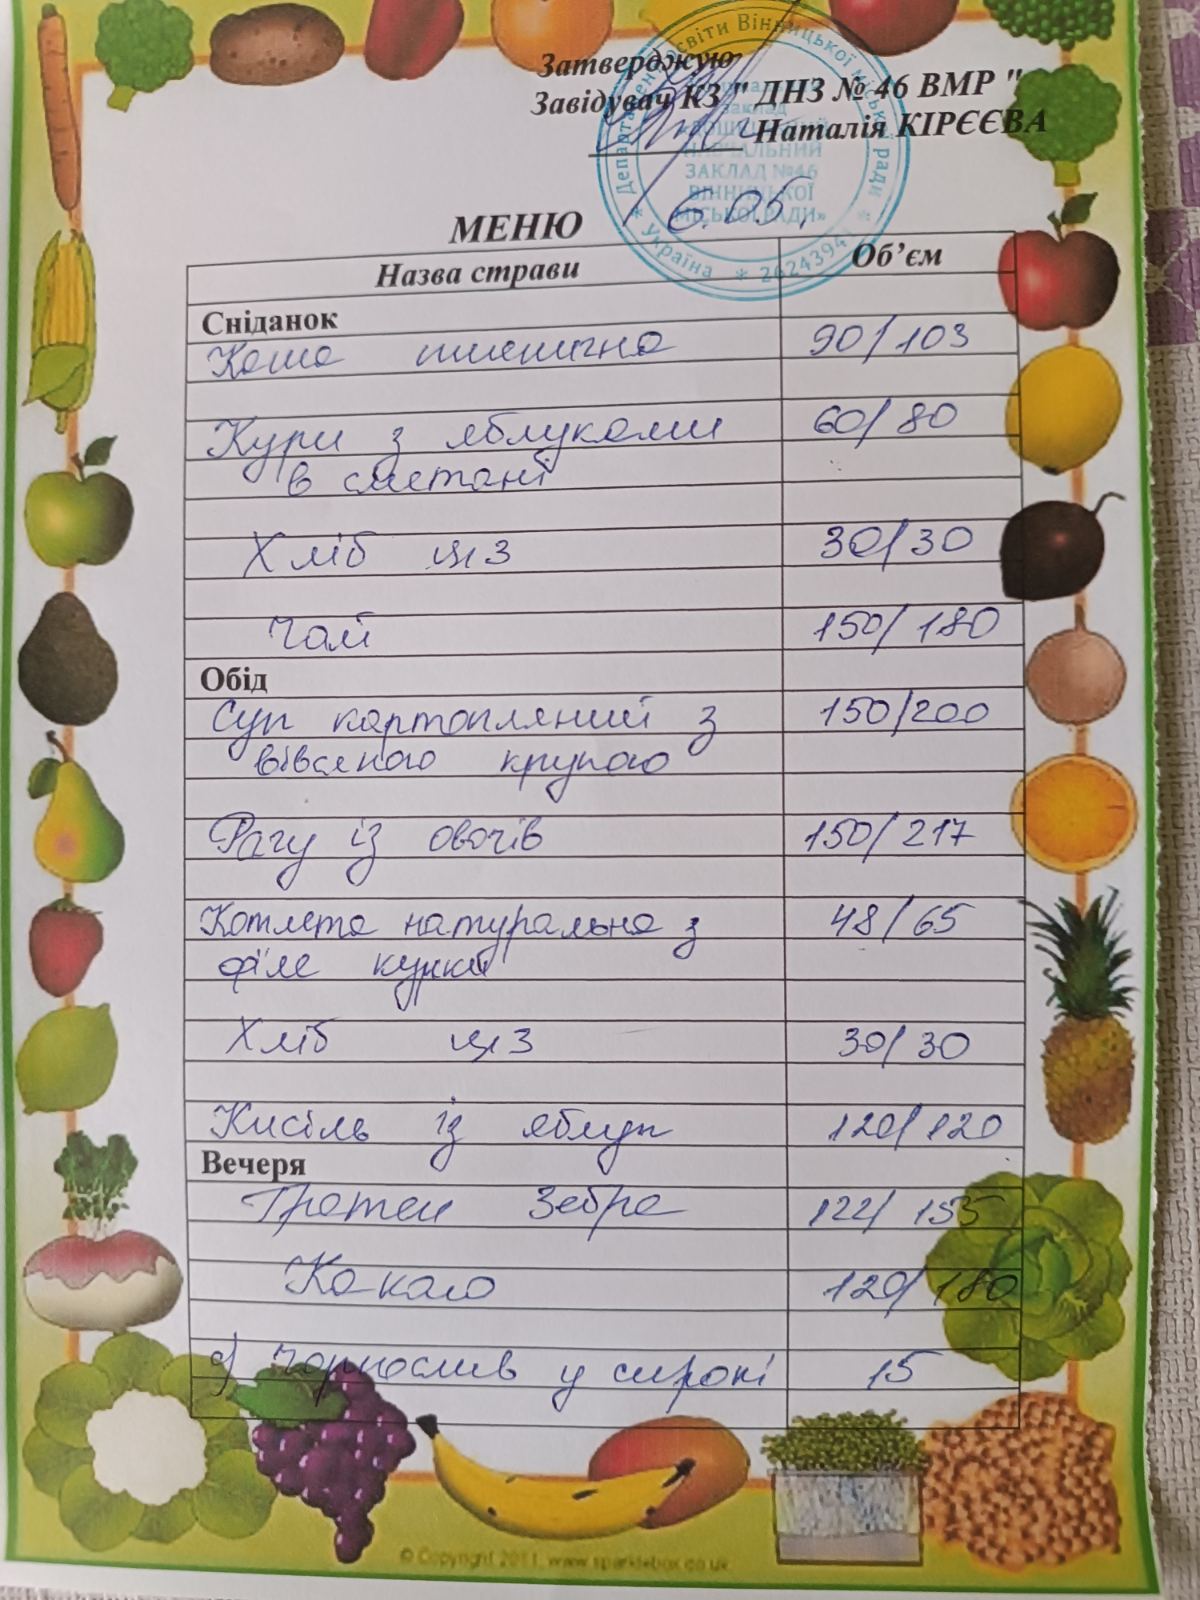 Затверджую
Завідувач КЗ " ДНЗ № 46 ВМР "
Наталія КІРЄЄВА
Департамент освіти Вінницької міської ради
заклад
НАВЧАЛЬНИЙ
ЗАКЛАД №46
ВІННИЦЬКОЇ
МІСЬКОЇ РАДИ»
* Україна * 26243941 *
16.05.
МЕНЮ
Назва страви Об’єм
Сніданок
Каша пшенична 90/103
Кури з яблуками 60/80
в сметані
Хліб цз 30/30
Чай 150/180
Обід
Суп картопляний з 150/200
вівсяною крупою
Рагу із овочів 150/217
Котлета натуральна з 48/65
філе курки
Хліб цз 30/30
Кисіль із яблук 120/120
Вечеря
Зебра 122/155
Какао 120/180
Чорнослив у сиропі 15
© Copyright 2011, www.sparklebox.co.uk